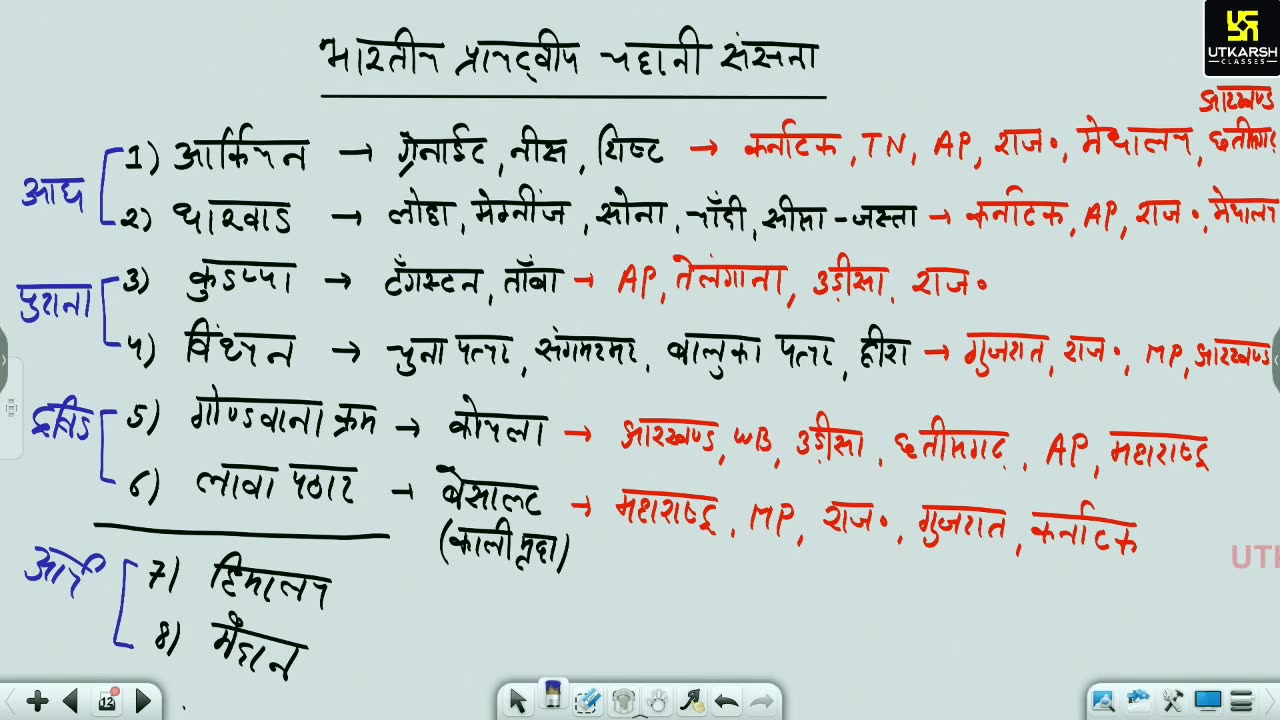 UTKARSH
CLASSES
भारतीय प्रायद्वीप चट्टानी संरचना
झारखण्ड
आद्य
1) आर्कियन → ग्रेनाईट, नीस, शिष्ट → कर्नाटक, TN, AP, राज॰, मेघालय, छत्तीसगढ़
2) धारवाड → लोहा, मेग्नींज, सोना, चाँदी, सीसा-जस्ता → कर्नाटक, AP, राज॰, मेघालय
पुराना
3) कुडप्पा → टँगस्टन, ताँबा → AP, तेलंगाना, उड़ीसा, राज॰
4) विंध्यन → चुना पत्थर, संगमरमर, बालुका पत्थर, हीरा → गुजरात, राज॰, MP, झारखण्ड
द्रविड
5) गोण्डवाना क्रम → कोयला → झारखण्ड, WB, उड़ीसा, छत्तीसगढ़, AP, महाराष्ट्र
6) लावा पठार → बेसाल्ट → महाराष्ट्र, MP, राज॰, गुजरात, कर्नाटक
(काली मृदा)
आर्य
7) हिमालय
8) मैदान
UTK
12